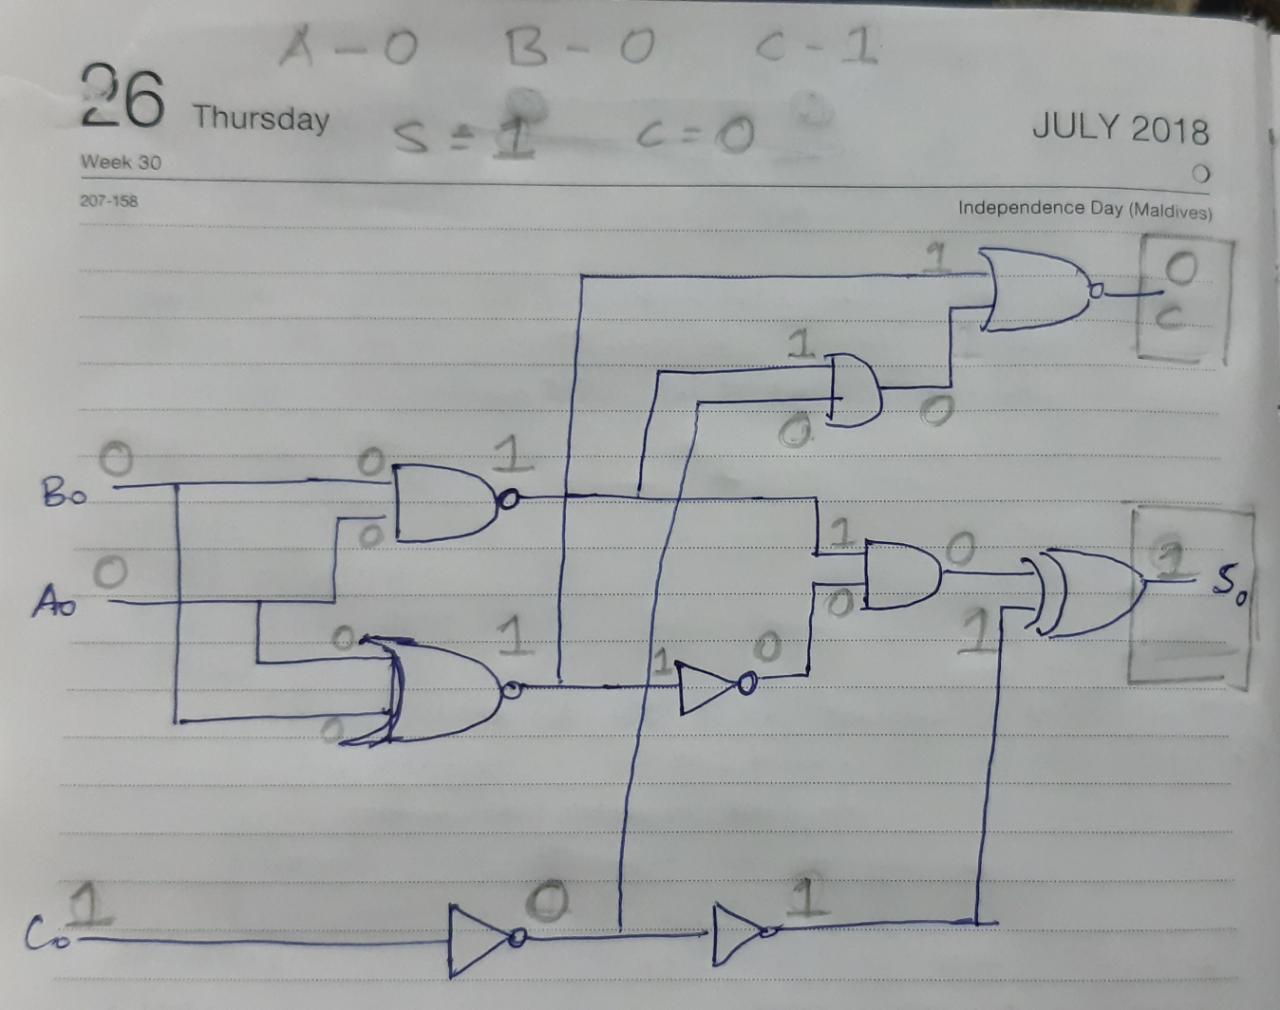 A - 0 B - 0 C - 1
26 Thursday S = 1 C = 0 JULY 2018
Week 30
207-158 Independence Day (Maldives)
1 0
C
1
0 0
B0 0 0 1
0
1 0 1 S0
A0 0 0 1
0 1 0
1
0
C0 1 0 1